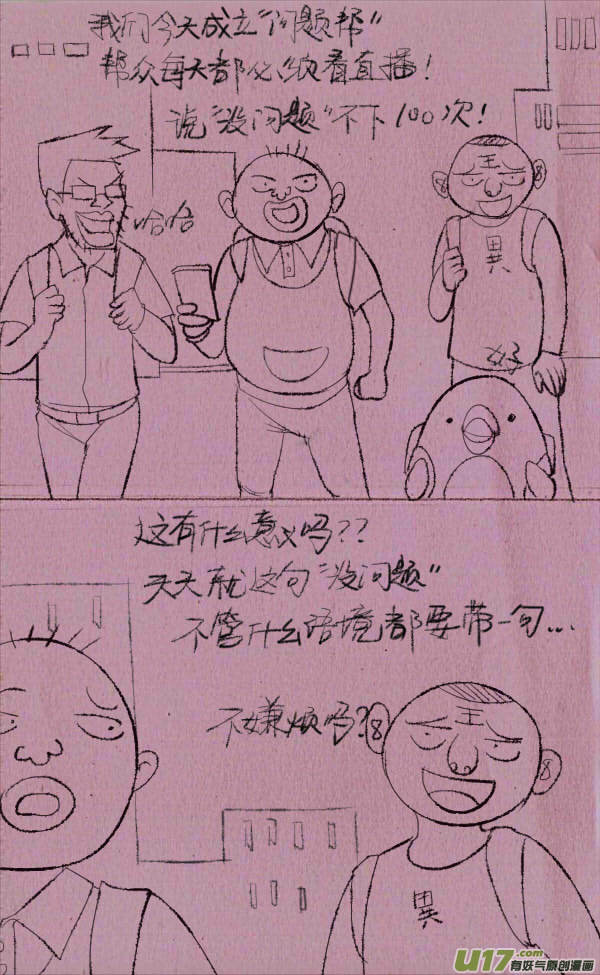 我们今天成立“问题帮”
帮众每天都必须看直播!
说“没问题”不下100次!
哈哈
王
異
好
这有什么意义吗??
天天就这句“没问题”
不管什么语境都要带一句...
不嫌烦吗?
王
異
U17.com
有妖气原创漫画